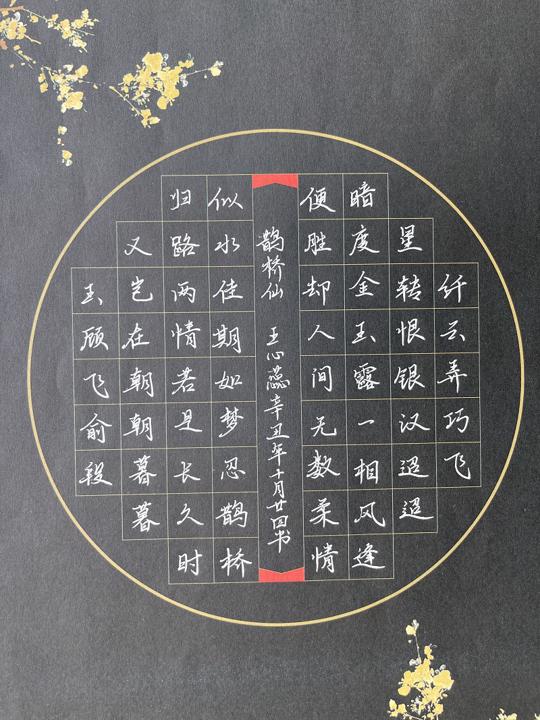 纤云弄巧飞
星转恨银汉迢迢
暗度金玉露一相风逢
便胜却人间无数柔情
鹊桥仙 王心蕊 辛丑年十月廿四书
似水佳期如梦忍鹊桥
归路两情若是长久时
又岂在朝朝暮暮
顾飞俞段